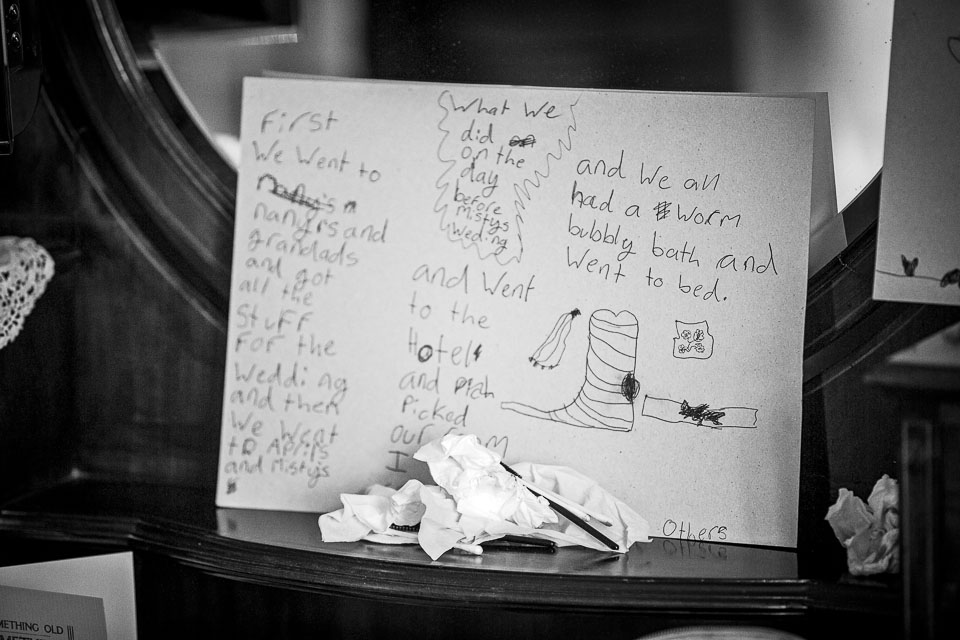 What We
did
on the
day
before
mistys
weding
First
We Went to
nanyrs and
grandads
and got
all the
Stuff
For the
Wedding
and then
We Went
to Aprils
and Misty's
and Went
to the
Hotel
and
Picked
our room
I
and We all
had a Worm
bubbly bath and
Went to bed.
Others
METHING OLD